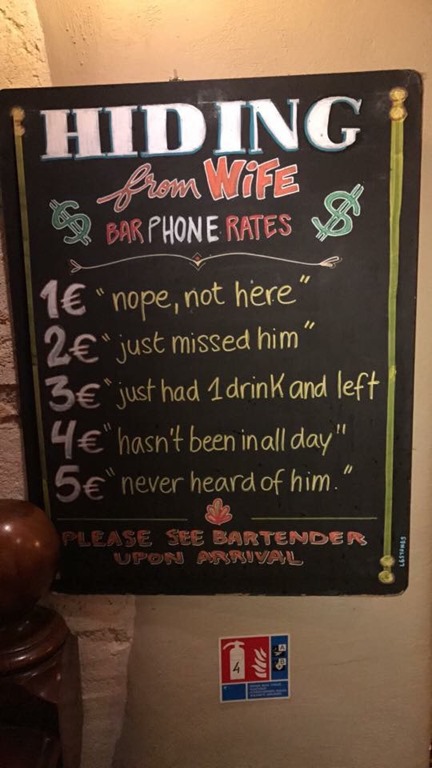 HIDING
from WiFE
$ BAR PHONE RATES $
1€ "nope, not here"
2€ "just missed him"
3€ "just had 1 drink and left
4€ "hasn't been in all day"
5€ "never heard of him."
PLEASE SEE BARTENDER
UPON ARRIVAL
4